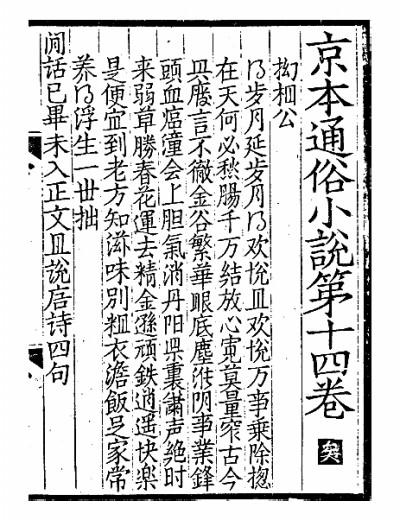 京本通俗小説第十四卷
拗相公
得歲月延歲月得欢悅且欢悅万事乗除揔
在天何必愁腸千万結放心寛莫量窄古今
興廢言不徹金谷繁華眼底塵淮阴事業鋒
頭血臨潼会上胆氣消丹阳県裏簫声絶时
来弱草勝春花運去精金遜頑鉄逍遥快楽
是便宜到老方知滋味別粗衣澹飯足家常
养得浮生一世拙
閒話已畢未入正文且説唐詩四句